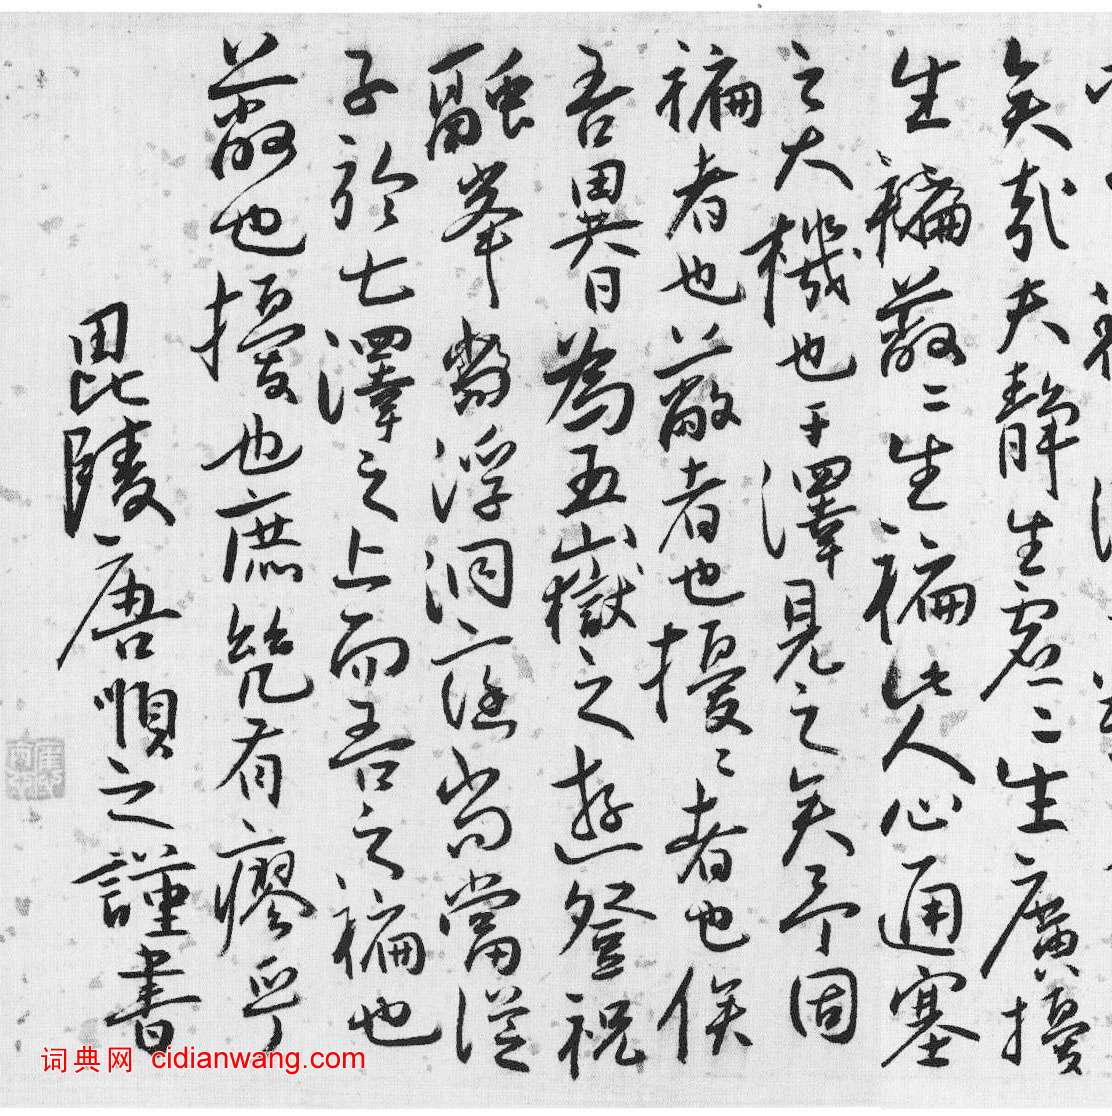 矣哉夫靜生虛〻生廣擾
生褊蔽〻生褊此人心通塞
之大機也于澤見之矣予固
褊者也蔽者也擾〻者也俟
吾異日為五嶽之遊登祝
融峯浮洞庭尚當從
子於七澤之上而吾之褊也
蔽也擾也庶幾有瘳乎
毘陵唐順之謹書
词典网 cidianwang.com